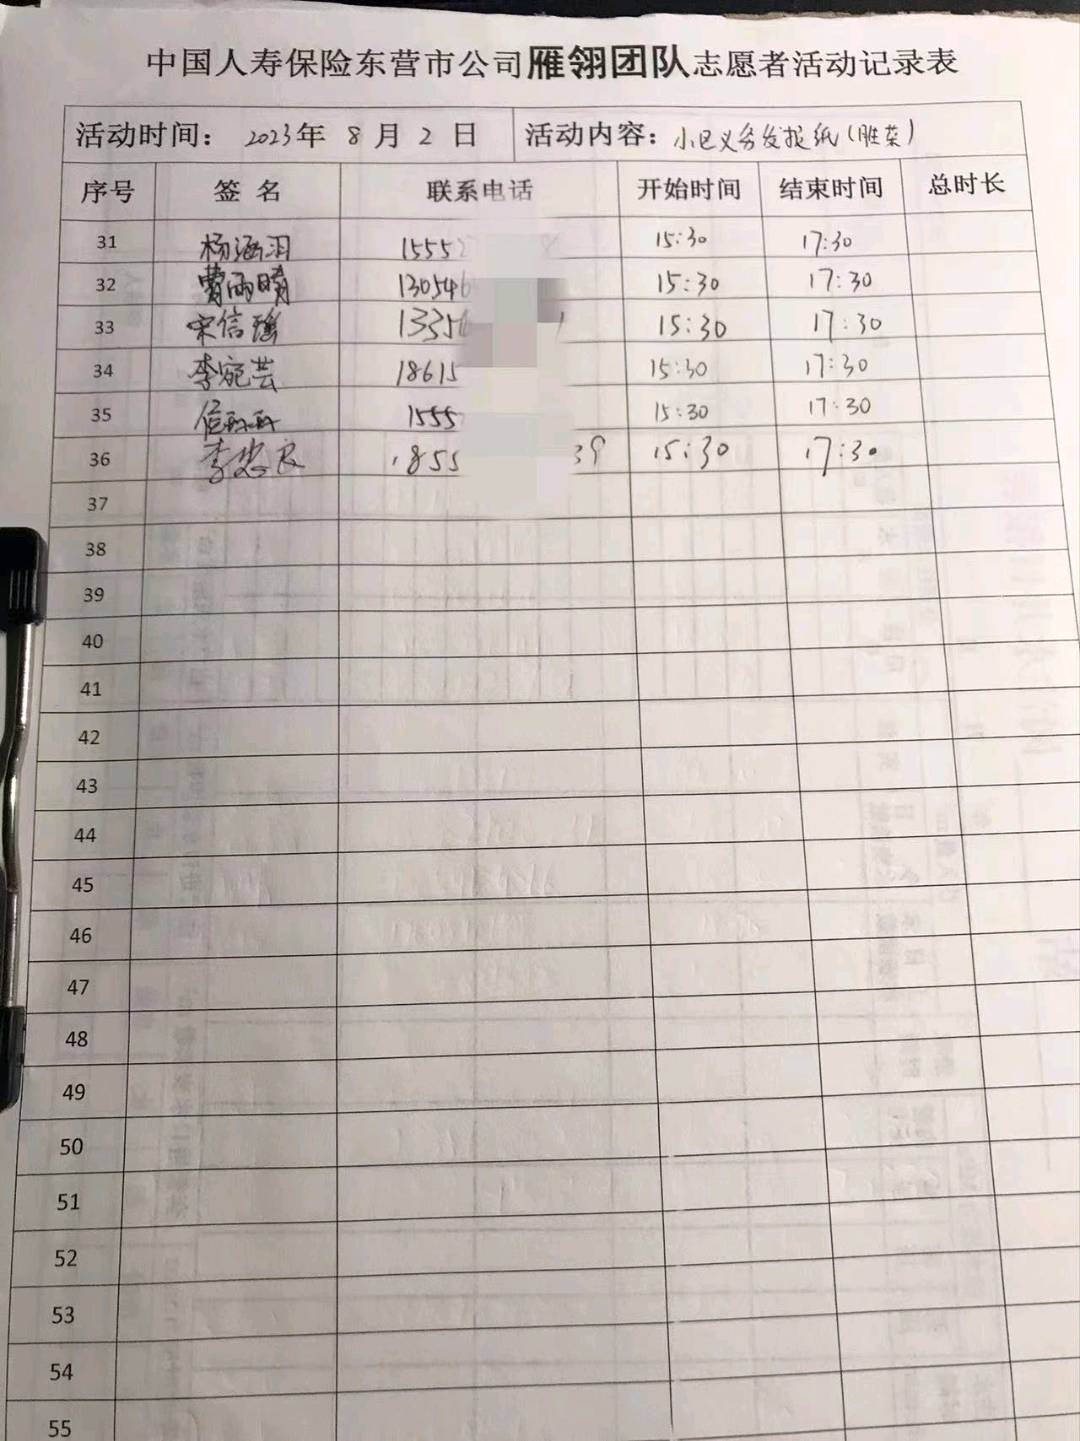 中国人寿保险东营市公司雁翎团队志愿者活动记录表
活动时间: 2023年 8 月 2 日 活动内容: 小巴义务发报纸(胜英)
序号 签 名 联系电话 开始时间 结束时间 总时长
31 杨涵羽 1555 15:30 17:30
32 曹雨晴 13054 15:30 17:30
33 宋信瑶 1335 15:30 17:30
34 李宛芸 18615 15:30 17:30
35 1555 15:30 17:30
36 李忠良 1855 39 15:30 17:30
37
38
39
40
41
42
43
44
45
46
47
48
49
50
51
52
53
54
55